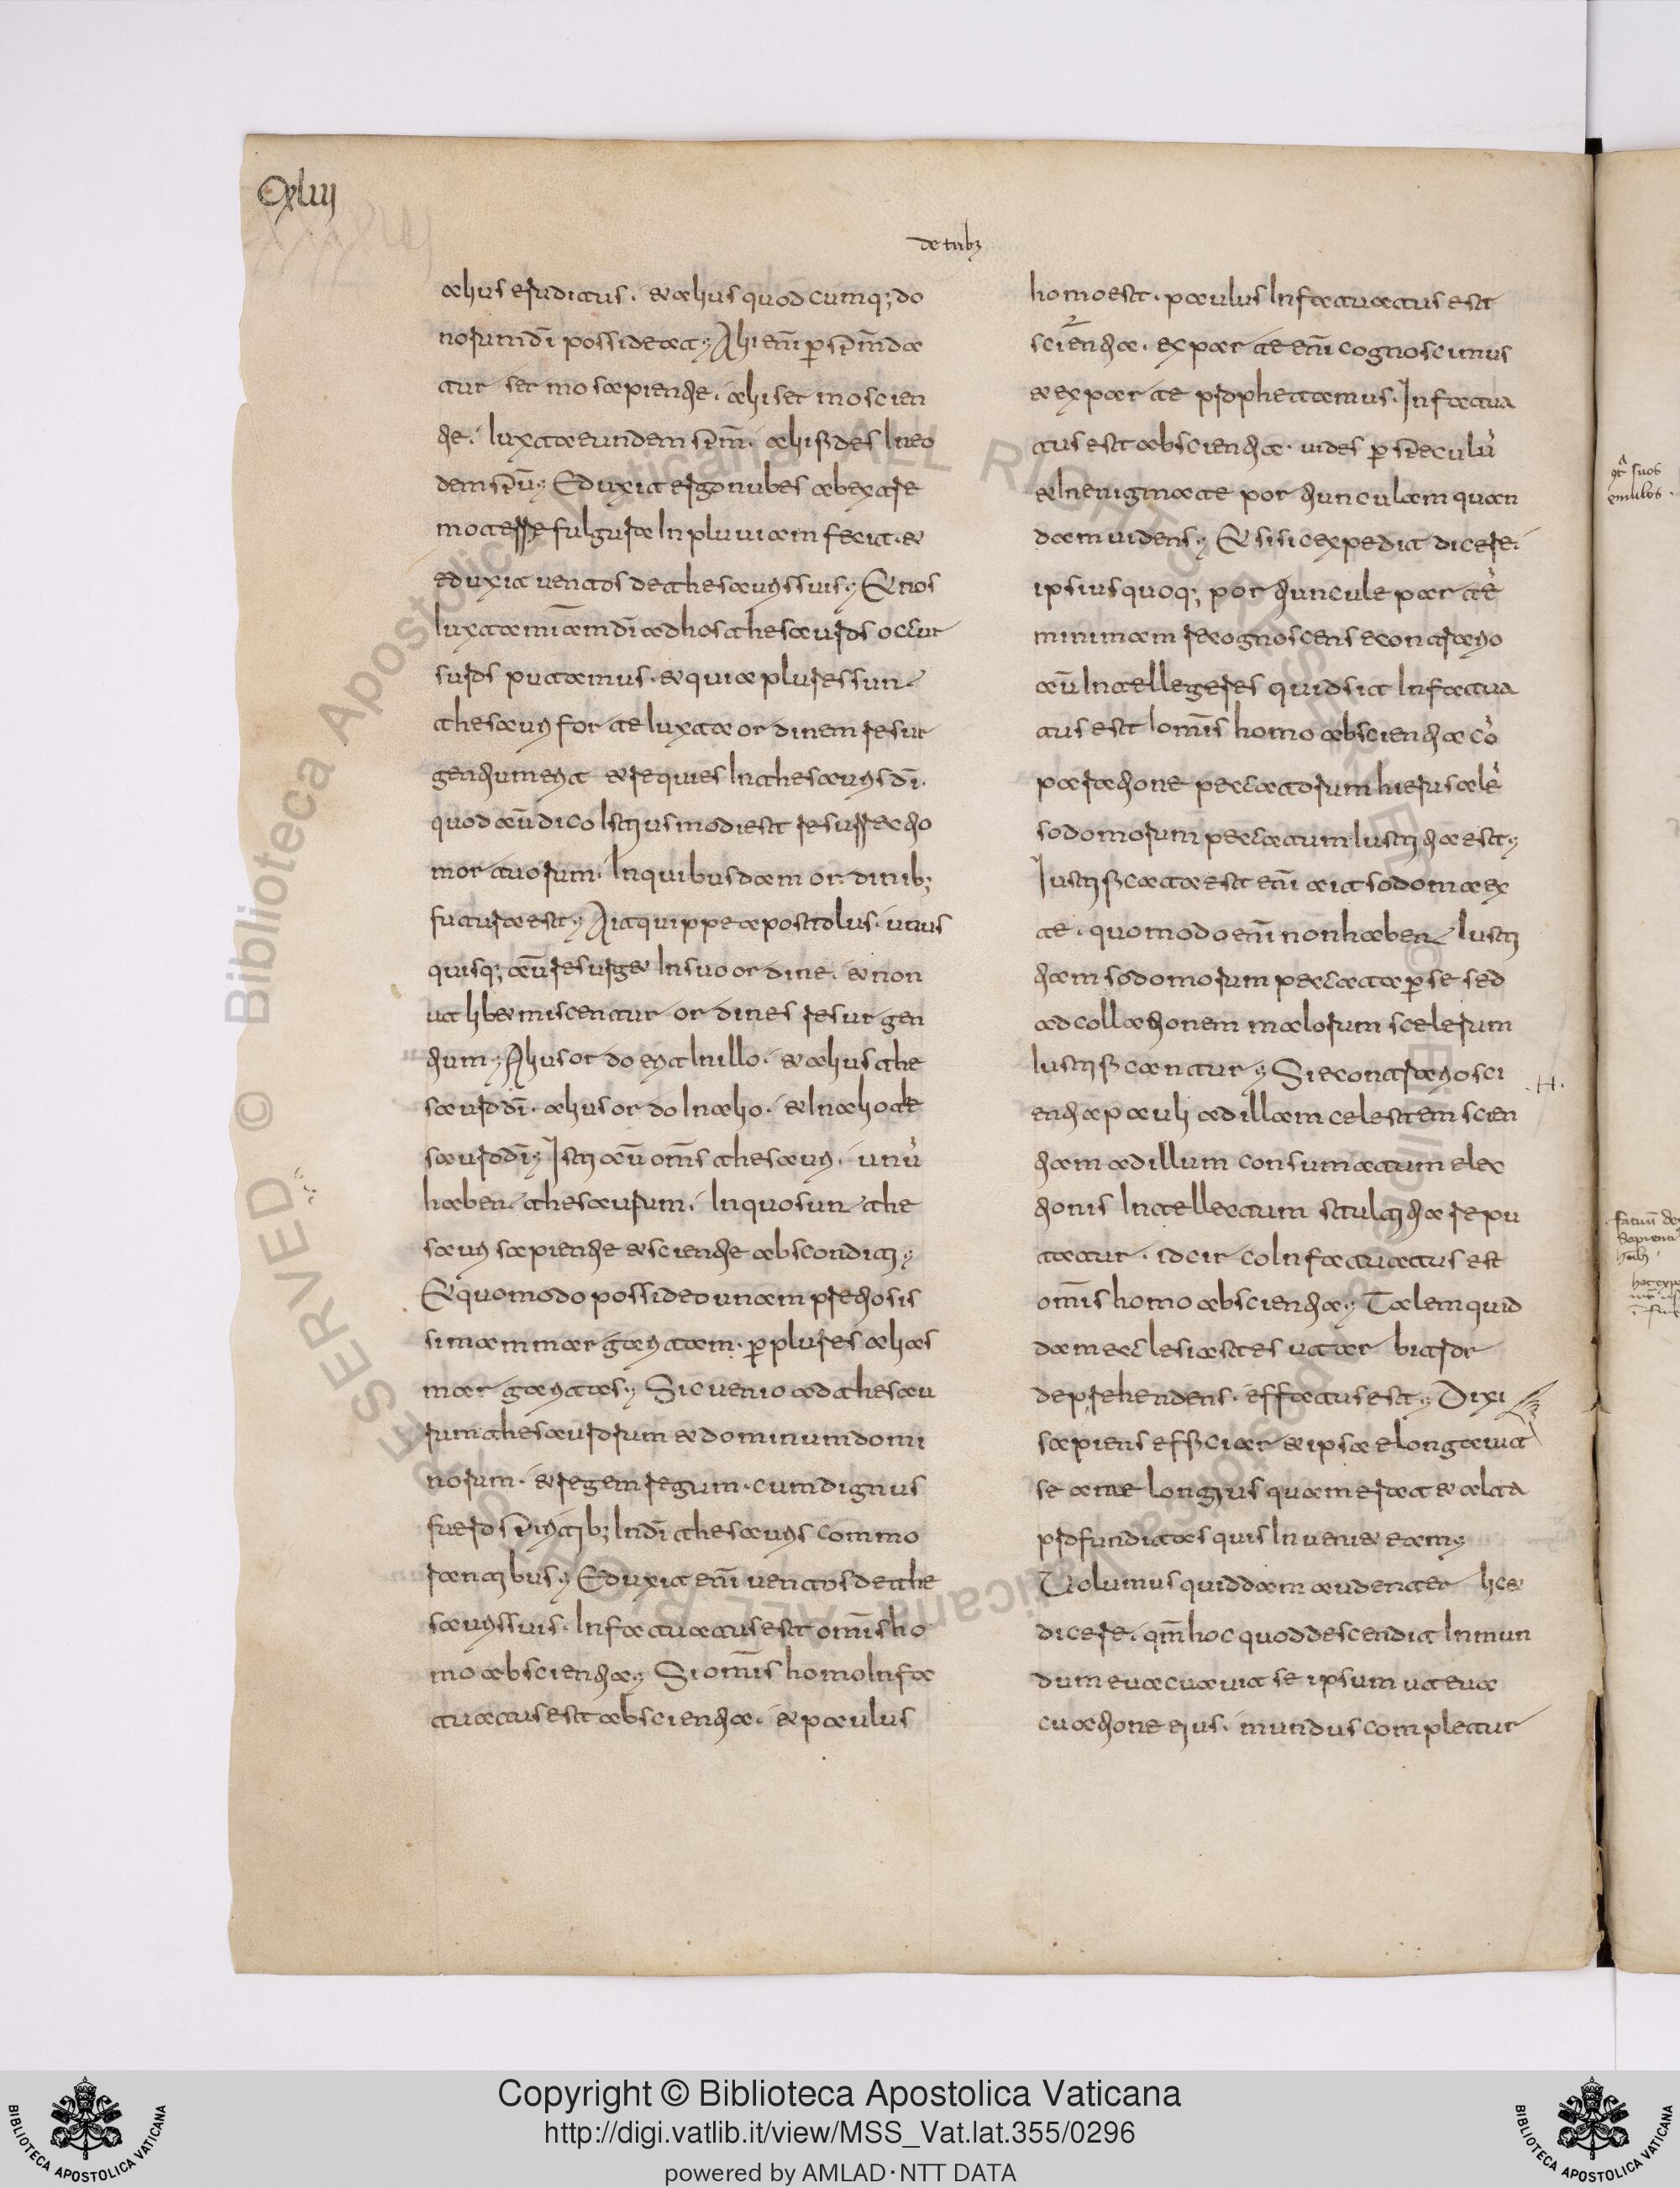 Cxluij
de trib;
alius eruditus. et alius quodcumq; do
norum dī possideat; Alii enī ꝑ sp̄m da
tur sermo sapientie. alii sermo scien
tie. iuxta eundem sp̄m. alii fides in eo
dem sp̄u; Eduxit ergo nubes ab extre
mo terre fulgura in pluuiam fecit. et
eduxit uentos de thesauris suis; Et nos
iuxta mīam dī ad hos thesauros occur
suros putamus. et quia plures sunt
thesauri forte iuxta ordinem resur
gentium erit et requies in thesauris dī.
quod aūt dico istiusmodi est resurrectio
mortuorum. in quibusdam ordinib;
futura est; Ait quippe apostolus. unus
quisq; aūt resurget in suo ordine. et non
ut libet miscentur ordines resurgen
tium; Alius ordo erit in illo. et alius the
sauro dī. alius ordo in alio. et in alio the
sauro dī; Isti aūt om̄s thesauri. unū
habent thesaurum. in quo sunt the
sauri sapientie et scientie absconditi;
Et quomodo possideo unam pretiosis
simam margaritam. ꝑ plures alias
margaritas; Sic uenio ad thesau
rum thesaurorum et dominum domi
norum. et regem regum. cum dignus
fuero sp̄iritib; in dī thesauris commo
rantibus; Eduxit enī uentos de the
sauris suis. Infatuatus est om̄is ho
mo ab scientia; Si om̄is homo infa
tuatus est ab scientia. et paulus
homo est. paulus infatuatus est
sciēntia. ex parte enī cognoscimus
et ex parte prophetamus. Infatua
tus est ab scientia. uides ꝑ speculū
et in enigmate portiunculam quan
dam uidens; Et si sic expedit dicere.
ipsius quoq; portiuncule partē
minimam recognoscens e contrario
aūt intellegeres quid sit infatua
tus est om̄is homo ab scientia cō
paratione peccatorum hierusalē
sodomorum peccatum iustitia est;
Iustificata est enī ait sodoma ex
te. quomodo enī non habent iusti
tiam sodomorum peccata ꝑ se sed
ad collationem malorum scelerum
iustificantur; Sic e contrario sci
.H.
entia pauli ad illam celestem scien
tiam ad illum consumatum elec
tionis intellectum stultitia repu
tatur. idcirco infatuatus est
om̄is homo ab scientia; Talem quid
dam ecclesiastes ut arbitror
deprehendens. effatus est; Dixi
sapiens efficiar et ipsa elongauit
se a me longius quam erat et alta
profunditas quis inueniet eam;
Uolumus quiddam audenter licet
dicere. qm̄ hoc quod descendit in mun
dum euacuauit se ipsum ut eua
cuatione eius. mundus completur
suos
emulos.
Copyright © Biblioteca Apostolica Vaticana
http://digi.vatlib.it/view/MSS_Vat.lat.355/0296
powered by AMLAD·NTT DATA